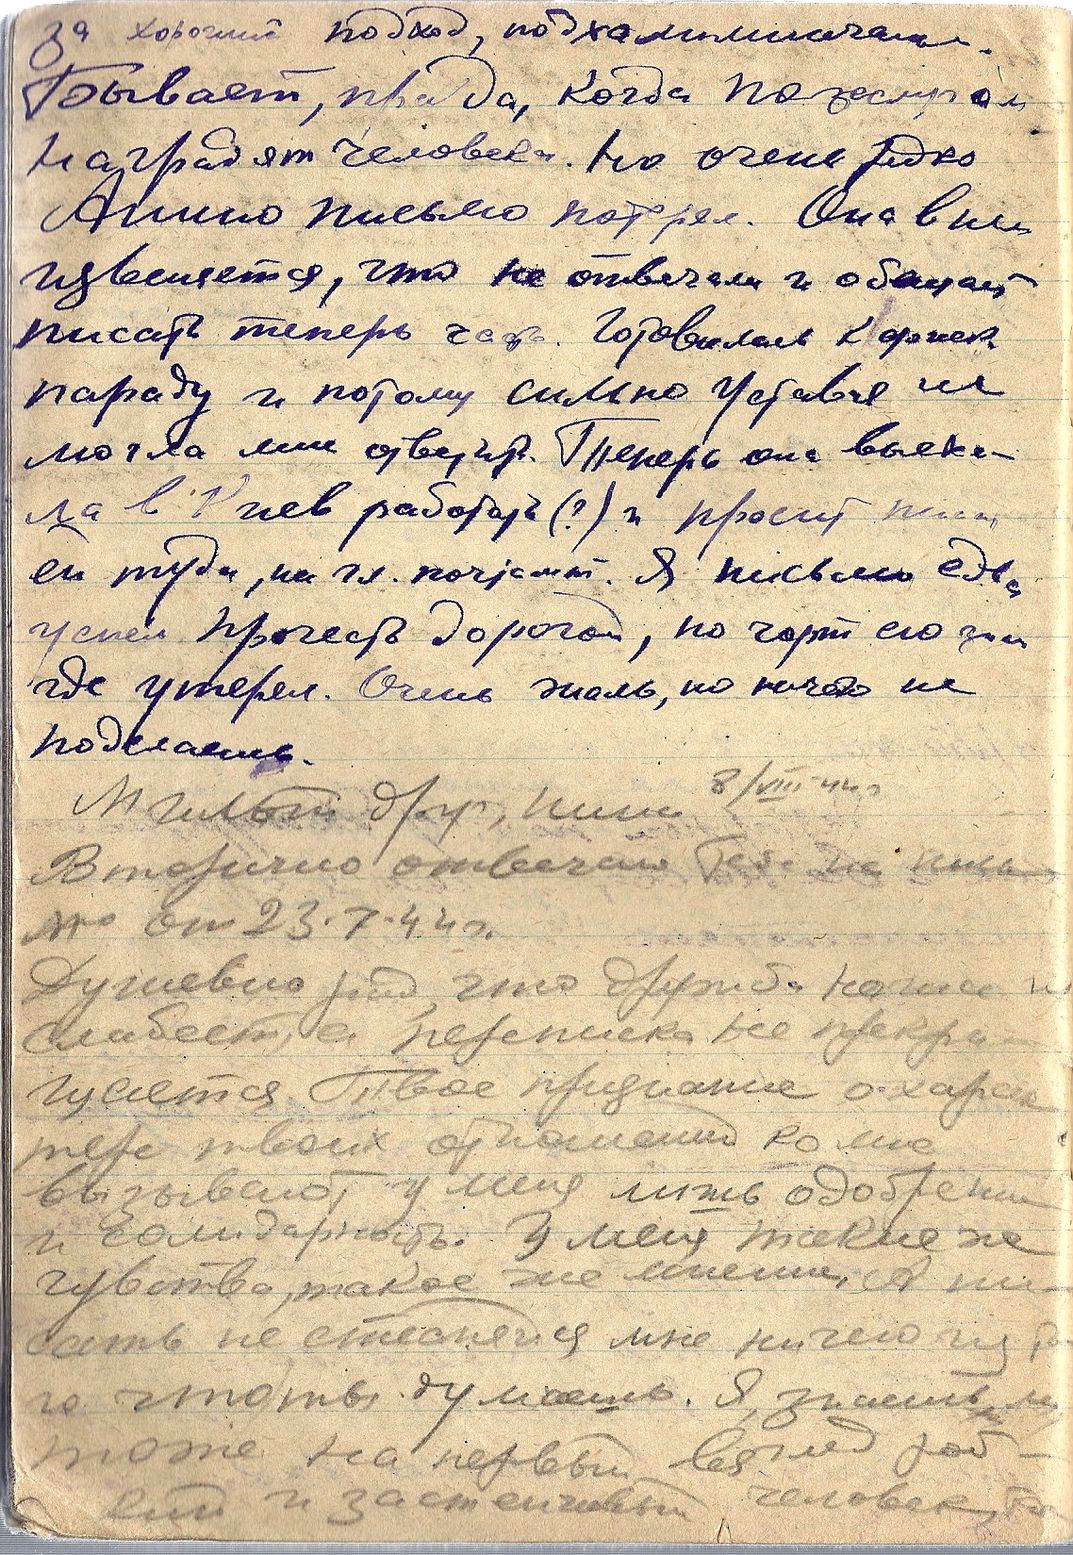 за хороший подход, подхалимничанье.
Бывает, правда, когда по заслугам
наградят человека. Но очень редко
Анино письмо потерял. Она в нем
извиняется, что не отвечала и обещает
писать теперь часто. Готовилась к физк.
параду и потому сильно уставая не
могла мне ответить. Теперь она выеха-
ла в Киев работать (?) и просит писать
ей туда, на гл. почтамт. Я письмо едва
успел прочесть дорогой, но чорт его знает
где утерял. Очень жаль, но ничего не
поделаешь.
8/VIII-44 г.
Милый друг, Нина
Вторично отвечаю Тебе на пись-
мо от 23.7.44 г.
Душевно рад, что дружба наша не
слабеет, а переписка не прекра-
щается Твое признание о харак
тере твоих отношений ко мне
вызывают у меня лишь одобрение
и солидарность. У меня такие же
чувства, такое же мнение. А пи-
сать не стесняйся мне ничего из то
го что ты думаешь. Я, знаешь ли
тоже на первый взгляд роб-
кий и застенчивый человек,